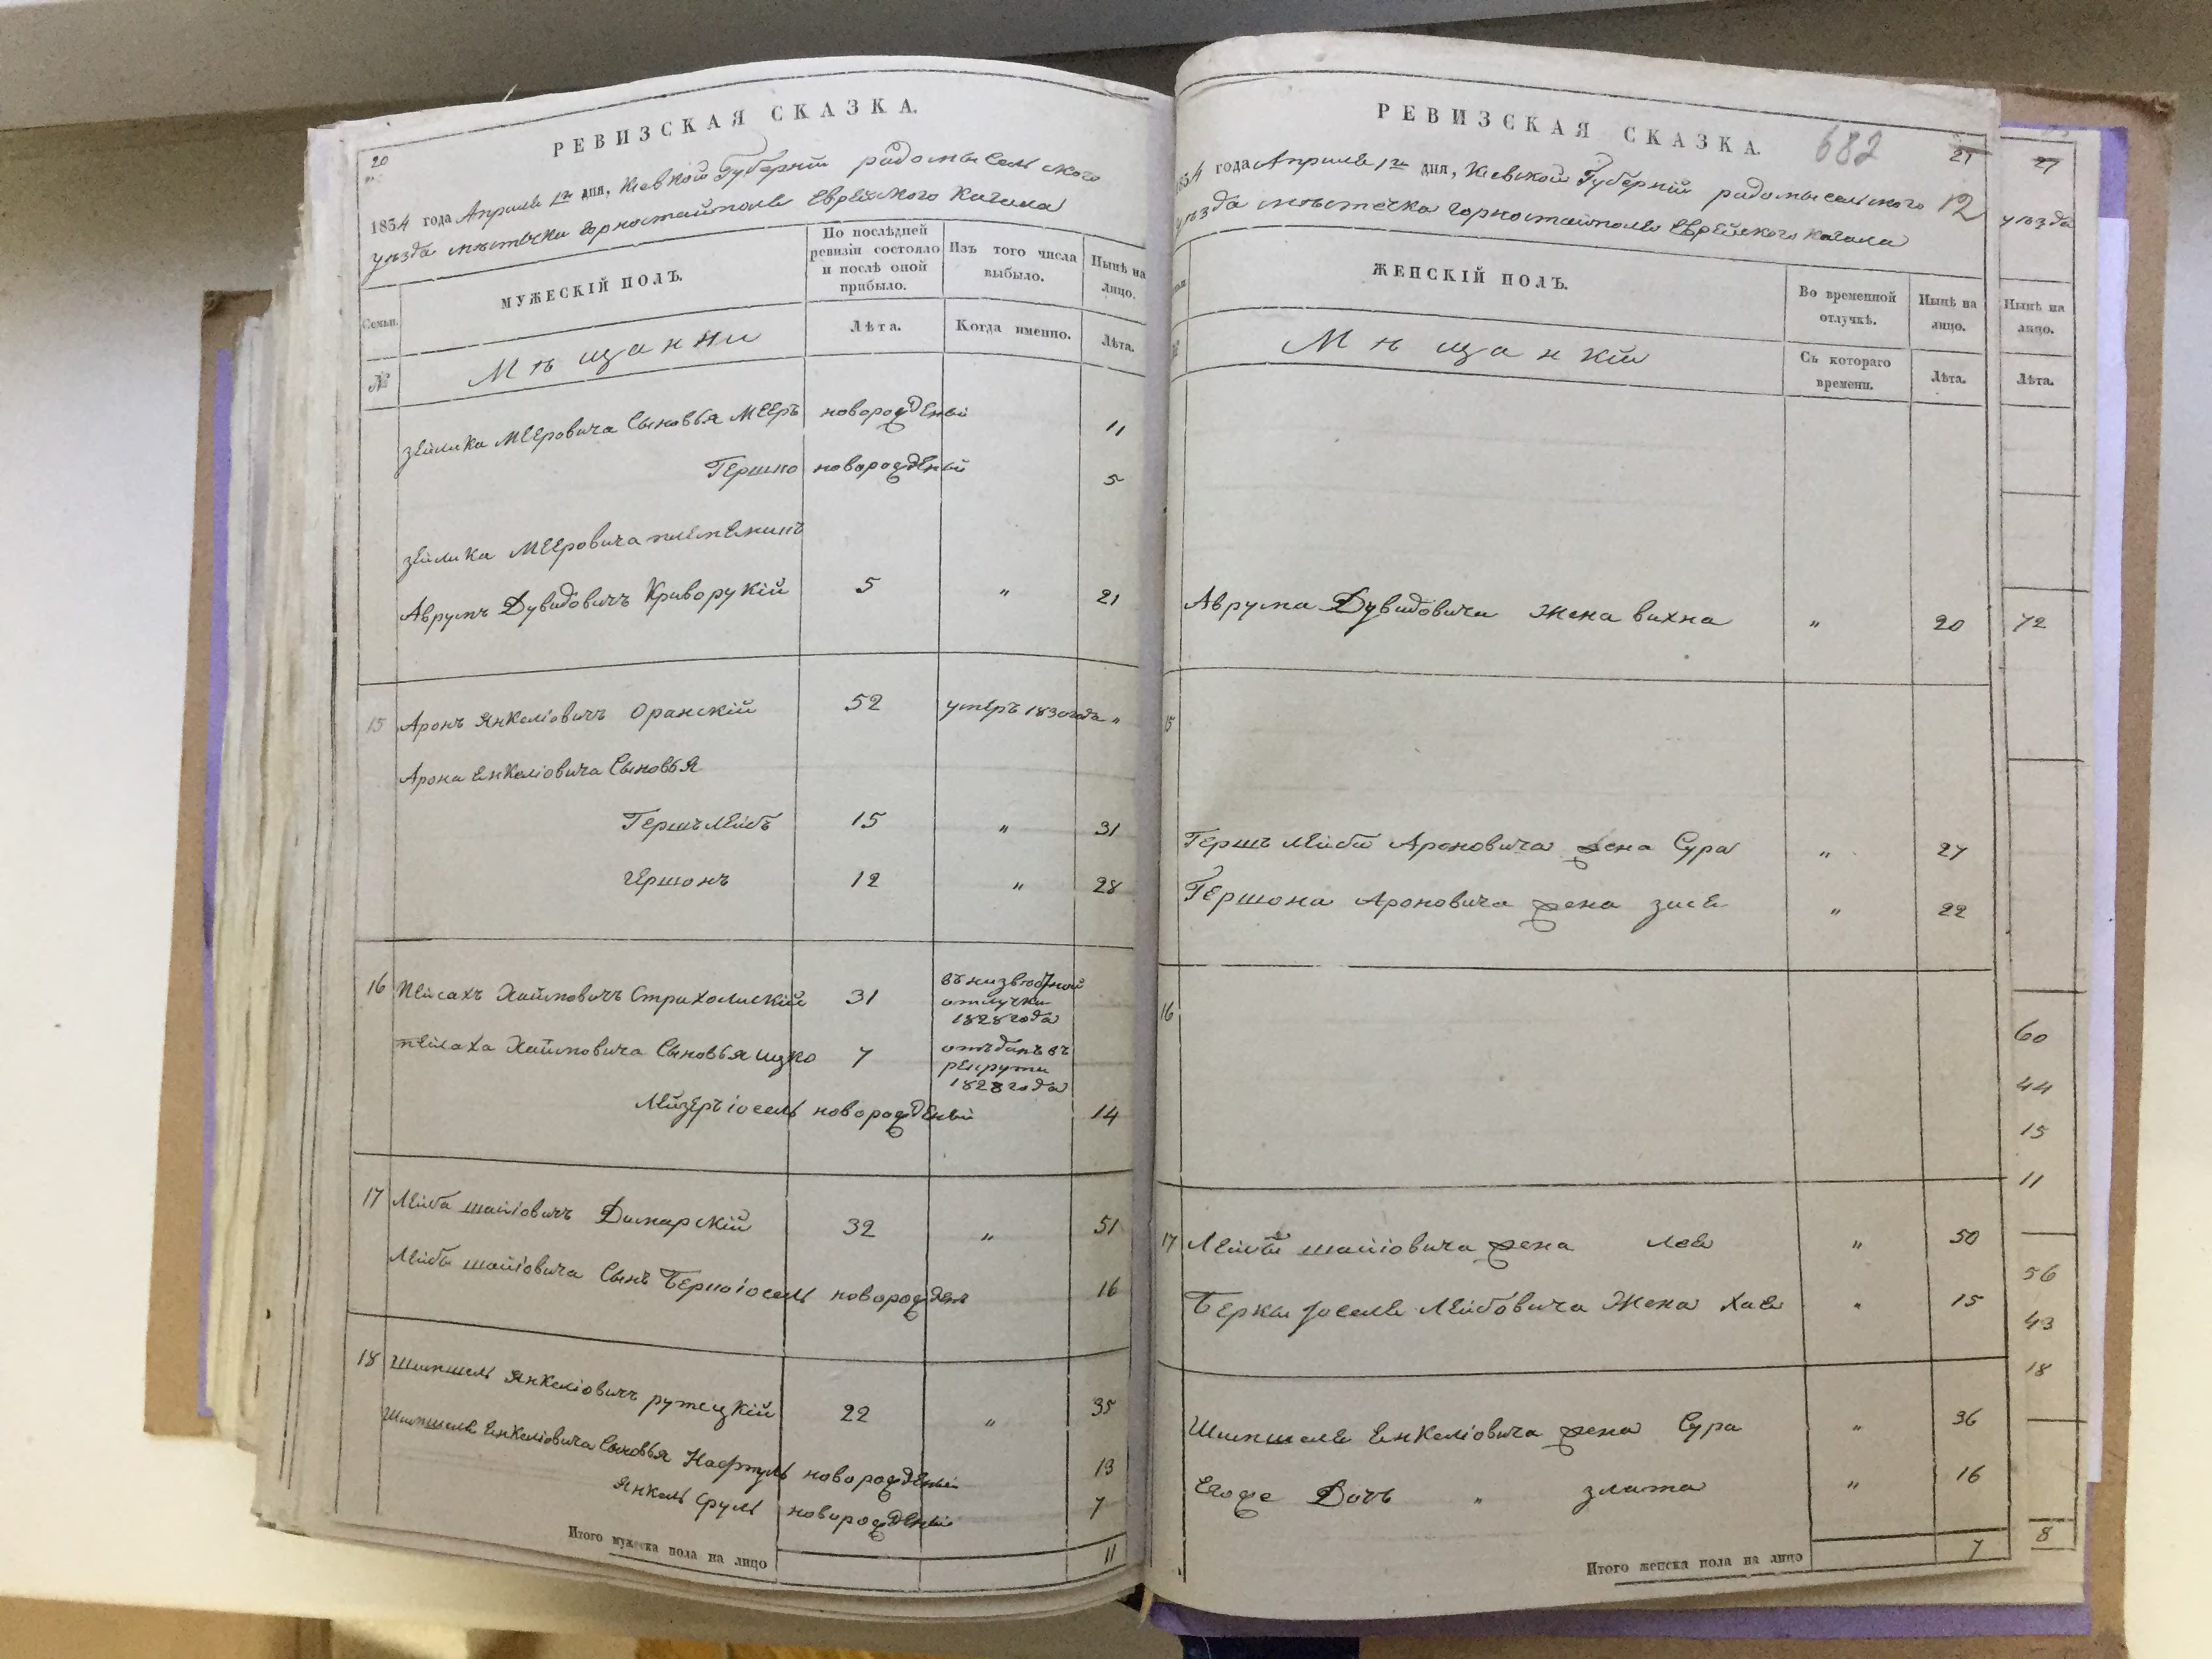 20
РЕВИЗСКАЯ СКАЗКА.
1834 года Апреля 1го дня, Киевской Губернии радомысельского
уезда местечка Горностайполя Еврейского Кагала
Семьи.
№
МУЖЕСКІЙ ПОЛЪ.
По послѣдней ревизіи состояло и послѣ оной прибыло.
Изъ того числа выбыло.
Нынѣ на лицо.
Мѣщанни
Лѣта.
Когда именно.
Лѣта.
Зейлика Мееровича Сыновья Мееръ новорожденый 11
Гершко новорожденый 5
Зейлика Мееровича племеникъ
Аврумъ Дувидовичъ Криворукій 5 " 21
15 Аронъ Янкеліовичъ Оранскій 52 умеръ 1830 года "
Арона Енкеліовича Сыновья
Гершъ Лейбъ 15 " 31
Гершонъ 12 " 28
16 Пейсахъ Хаймовичъ Страхолискій 31 отлучки 1828 года
Пейсаха Хаймовича Сыновья ицко 7 отъданъ въ рекруты 1828 года
Лейзеръ іосель новорожденый 14
17 Лейба шаиіовичъ Дымарскій 32 " 51
Лейбы шаиіовича Сынъ Берко іосель новорожден 16
18 Шимшель Янкеліовичъ 22 " 35
Шимшеля Енкеліовича Сыновья Нафтуль новорожденый 13
Янкель Сруль новорожденый 7
Итого мужеска пола на лицо 11
РЕВИЗСКАЯ СКАЗКА.
682
21
1834 года Апреля 1го дня, Киевской Губерній радомысельского
12
уезда местечка горностайполя Еврейского кагала
ЖЕНСКІЙ ПОЛЪ.
Во временной отлучкѣ.
Нынѣ на лицо.
Мѣщанкій
Съ котораго времени.
Лѣта.
Аврума Дувидовича жена вихна " 20
15
Гершъ Лейбы Ароновича жена Сура " 27
Гершона Ароновича жена зисе " 22
16
17 Лейбы шаиіовича жена лея " 50
Беркы Іоселя Лейбовича жена хая " 15
Шимшеля Енкеліовича жена Сура " 36
Егоже Дочъ " злата " 16
Итого женска пола на лицо 7
27
уезда
Нынѣ на лицо.
Лѣта.
72
60
44
15
11
56
43
18
8